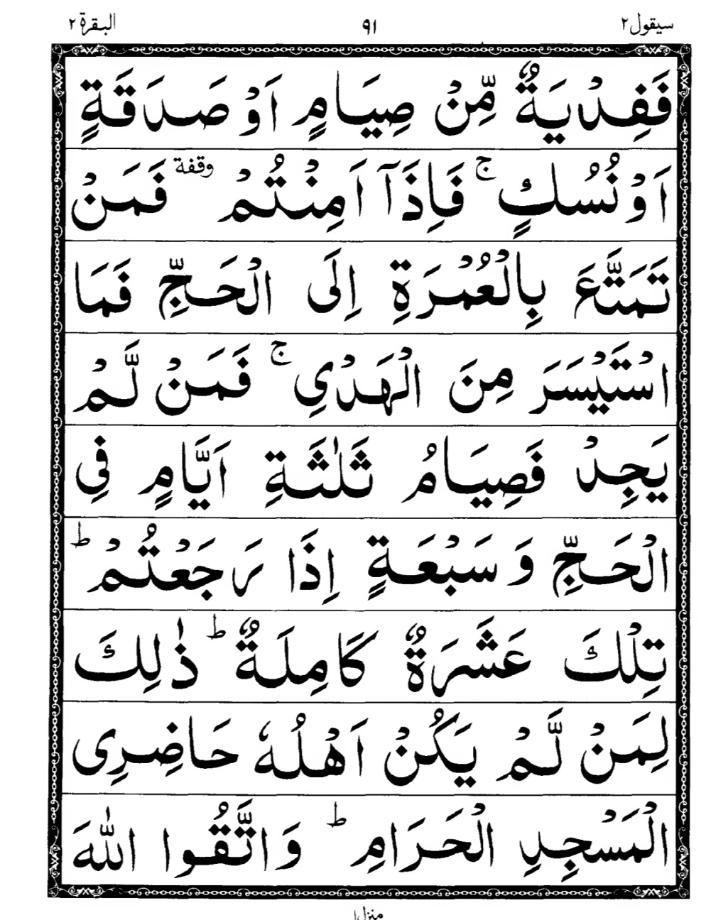 سیقول ۲ ۹۱ البقرة ۲
فَفِدْيَةٌ مِّنْ صِيَامٍ اَوْ صَدَقَةٍ
اَوْ نُسُكٍ ۚ فَاِذَآ اَمِنْتُمْ وقفة فَمَنْ
تَمَتَّعَ بِالْعُمْرَةِ اِلَى الْحَجِّ فَمَا
اسْتَيْسَرَ مِنَ الْهَدْيِ ۚ فَمَنْ لَّمْ
يَجِدْ فَصِيَامُ ثَلٰثَةِ اَيَّامٍ فِي
الْحَجِّ وَ سَبْعَةٍ اِذَا رَجَعْتُمْ ؕ
تِلْكَ عَشَرَةٌ كَامِلَةٌ ؕ ذٰلِكَ
لِمَنْ لَّمْ يَكُنْ اَهْلُهٗ حَاضِرِى
الْمَسْجِدِ الْحَرَامِ ؕ وَاتَّقُوا اللّٰهَ
منزل ۱